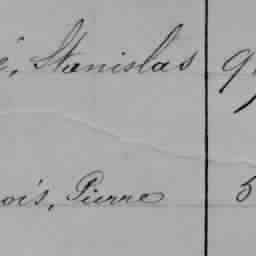 é, Stanislas 9
ois, Pierre 5